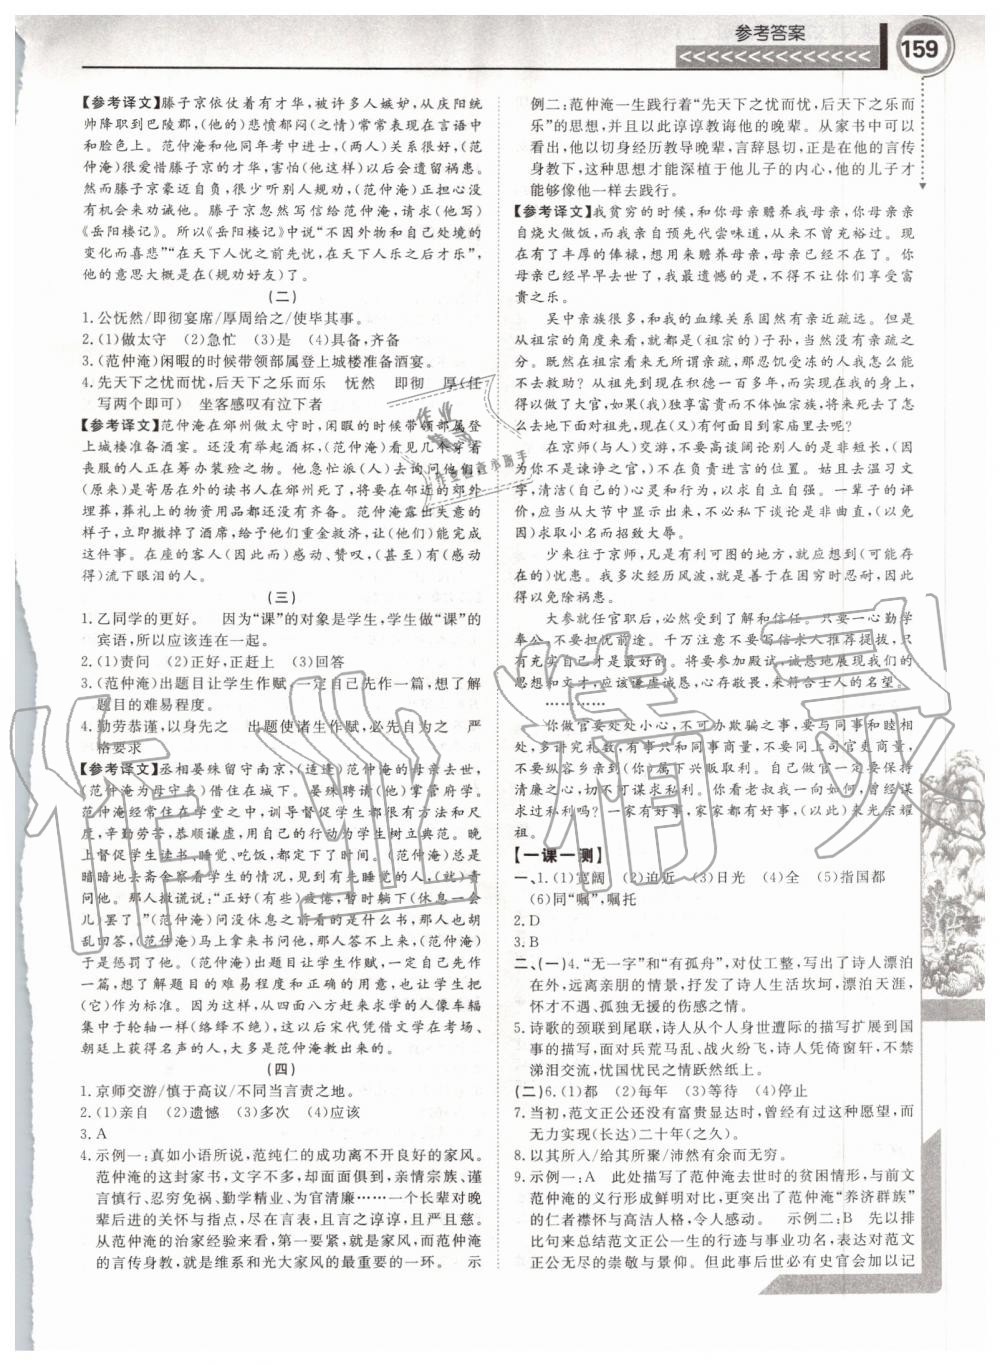 参考答案
159
【参考译文】滕子京依仗着有才华，被许多人嫉妒，从庆阳统
帅降职到巴陵郡，(他的)悲愤郁闷(之情)常常表现在言语中
和脸色上。范仲淹和他同年考中进士，(两人)关系很好，(范
仲淹)很爱惜滕子京的才华，害怕(他这样)以后会遭留祸患。
然而滕子京豪迈自负，很少听别人规劝，(范仲淹)正担心没
有机会来告诫他。滕子京忽然写信给范仲淹，请求(他写)
《岳阳楼记》。所以《岳阳楼记》中说“不因外物和自己处境的
变化而喜悲”“在天下人忧之前先忧，在天下人乐之后才乐”，
他的意思大概是在(规劝好友)了。
(二)
1. 公怃然/即彻宴席/厚周给之/使毕其事。
2. (1)做太守　(2)急忙　(3)是　(4)具备，齐备
3. (范仲淹)闲暇的时候带领部属登上城楼准备酒宴。
4. 先天下之忧而忧，后天下之乐而乐　怃然　即彻　厚(任
写两个即可)　坐客感叹有泣下者
【参考译文】范仲淹在邠州做太守时，闲暇的时候带领部属登
上城楼准备酒宴。还没有举起酒杯，(范仲淹)看见几个穿着
丧服的人正在筹办装殓之物。他急忙派(人)去询问(这件事)，
(原来)是寄居在外的读书人在邠州死了，将要在邻近的郊外
埋葬，葬礼上的物资用品都还没有备齐。范仲淹露出失意的
样子，立即撤掉了酒席，给予他们重金救济，(让他们)能完成
这件事。在座的客人(因此而)感动、赞叹，(甚至)有(感动
得)流下眼泪的人。
(三)
1. 乙同学的更好。　因为“课”的对象是学生，学生做“课”的
宾语，所以应该连在一起。
2. (1)责问　(2)正好，正赶上　(3)回答
3. (范仲淹)出题目让学生作赋，一定自己先作一篇，想了解
题目的难易程度。
4. 勤劳恭谨，以身先之　出题使诸生作赋，必先自为之　严
格要求
【参考译文】丞相晏殊留守南京，(适逢)范仲淹的母亲去世，
(范仲淹为母守丧)借住在城下。晏殊聘请(他)掌管府学。
范仲淹经常住在学堂之中，训导督促学生都有规矩和法
度，辛勤劳苦，恭顺谦虚，用自己的行动为学生树立典范。晚
上督促学生读书，睡觉、吃饭，都定了时间。(范仲淹)总是
暗暗地去斋舍察看学生的情况，看到有先睡觉的人，就责问
他。那人撒谎说：“正好(有些)疲倦，暂时躺下(休息一会
儿)罢了。”(范仲淹)问没休息之前看的是什么书，那人也胡
乱回答，(范仲淹)马上拿书来问他，那人不能回答，(范仲淹)
于是惩罚他。(范仲淹)出题目让学生作赋，一定自己先作一
篇，想了解题目的难易程度和正确的用意，也让学生把
(它)作为标准。因此，从四面八方赶来求学的人像车辐
集中于轮轴一样(络绎不绝)，这以后宋代凭借文学在考场、
朝廷上获得名声的人，大多是范仲淹教出来的。
(四)
1. 京师交游/慎于高议/不同当言责之地。
2. (1)亲自　(2)遗憾　(3)多次　(4)应该
3. A
4. 示例一：真如小语所说，范纯仁的成功离不开良好的家风。
范仲淹的这封家书，文字不多，却面面俱到，亲亲宗族、谨
言慎行、忍穷勿祸、勤学精业、为官清廉……一个长辈对晚
辈后进的关怀与指点，尽在言表，且言之谆谆，且严且慈。
从范仲淹的治家经验来看，第一要紧，就是家风，而范仲淹
的言传身教，就是维系和光大家风的最重要的一环。　示
例二：范仲淹一生践行着“先天下之忧而忧，后天下之乐而
乐”的思想，并且以此谆谆教诲他的晚辈。从家书中可以
看出，他以切身经历教导晚辈，言辞恳切，正是在他的言传
身教下，这种思想才能深植于他儿子的内心，他的儿子才
能够像他一样去践行。
【参考译文】我贫穷的时候，和你母亲赡养我母亲，你母亲亲
自烧火做饭，而我亲自预先代尝味道，从来不曾充裕过。现
在有了丰厚的俸禄，想用来赡养母亲，母亲却不在了。你母
亲也已经早早去世了，我最遗憾的是，不得不让你们享受富
贵之乐。
吴中亲族很多，和我的血缘关系固然有亲近疏远。但是
从祖宗的角度来看，就都是(祖宗的)子孙，当然没有亲疏之
分。既然在祖宗看来无所谓亲疏，那忍饥受冻的人我怎么能
不去救助？从祖先到现在积德一百多年，才报应在我的身上，
得以做了大官，如果(我)独享富贵而不体恤宗族，将来死了怎
么去地下面对祖先，现在(又)有何面目到家庙里去呢？
在京师(与人)交游，不要高谈阔论别人的是非，(因为)
你不是谏诤之官，不在负责进言的位置。姑且去温习文
字，清洁(自己的)心灵和行为，以求自立自强。一辈子的评
价，应当从大节中显示出来，不必私下谈论是非曲直，(以免
因)求取小名而招致大辱。
少来往于京师，凡是有利可图的地方，就应注意(可能存
在的)忧患。我多次经历风波，就是善于在困穷时忍耐，所以
得以免除祸患。
大参就任官职后，必定受到了解和信任。只要一心勤学
奉公，不要担忧前途。千万注意不要写信求人推荐提拔，只
有自己充实才是最好的。将要参加殿试，诚恳地展示自己的
思想和文才，应该谦虚诚恳，心存敬畏，来符合士人的名望。
…………
你做官要处处小心，不可办欺骗之事，要与同事和睦相
处，多讲究礼数，有事只和同事商量，不要同上司官吏商量，
不要纵容乡亲到(你属下)兴贩取利。自己做官一直要保持
清廉之心，切不可谋求私利。你看老叔从我一向如何，曾经谋
求过私利吗？一家有好事，家家都有好事，(以此)来光宗耀
祖。
【一课一测】
一、1. (1)宽阔　(2)迫近　(3)日光　(4)全　(5)指国都
(6)同“嘱”，嘱托
2. D
3. B
二、(一)4. “无一字”和“有孤舟”，对仗工整，写出了诗人漂泊
在外，远离亲朋的情景，抒发了诗人生活坎坷，漂泊天涯，怀
才不遇、孤独无援的伤感之情。
5. 诗歌的颈联到尾联，诗人从个人身世遭际的描写扩展到国
事的描写，面对兵荒马乱、战火纷飞，诗人凭倚窗轩，不禁
涕泪交流，忧国忧民之情跃然纸上。
(二)6. (1)都　(2)每年　(3)等待　(4)停止
7. 当初，范文正公还没有富贵显达时，曾经有过这种愿望，而
无力实现(长达)二十年(之久)。
8. 以其所入/给其所聚/沛然有余而无穷。
9. 示例一：A　此处描写了范仲淹去世时的贫困情形，与前文
范仲淹的义行形成鲜明对比，更突出了范仲淹“养济群族”
的仁者襟怀与高洁人格，令人感动。　示例二：B　先以排
比句来总结范文正公一生的行迹与事业功名，表达对范文
正公无尽的崇敬与景仰。但此事后世必有史官会加以记